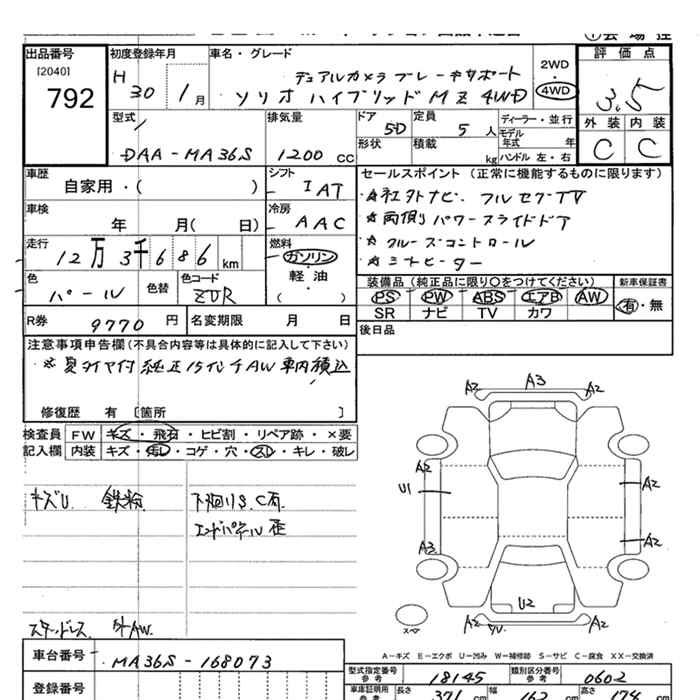 出品番号 初度登録年月 車名・グレード 2WD 評価点
[2040] 792 H 30 1月 デュアルカメラブレーキサポート 4WD 3.5
ソリオ ハイブリッド MZ 4WD
型式 排気量 ドア 定員 ディーラー・並行 外装 内装
DAA-MA36S 1200 CC 5D 5人 モデル年式 年 C C
形状 積載 kg ハンドル 左・右
車歴 シフト セールスポイント (正常に機能するものに限ります)
自家用・( ) IAT ☆社外ナビ フルセグTV
車検 冷房 ☆両側パワースライドドア
年 月( 日) AAC ☆クルーズコントロール
走行 燃料 ☆シートヒーター
12万3千686km ガソリン
軽・油
( )
色 色替 色コード 装備品 (純正品に限り〇をつけてください) 新車保証書
パール ZVR PS PW ABS エアB AW 有・無
SR ナビ TV カワ
R券 9770円 名変期限 月 日 後日品
注意事項申告欄(不具合内容等は具体的に記入して下さい)
※夏タイヤ付 純正15インチAW 車内積込
修復歴 有 〔箇所 〕
検査員 FW キズ・飛石・ヒビ割・リペア跡・×要
記入欄 内装 キズ・汚レ・コゲ・穴・スレ・キレ・破レ
キズU 鉄粉 下廻りS.C有
エンドパネル歪
スタッドレス 外AW
A2 A3 A2
A2 A2
U1
A3 A2
U2
A2 A2
スペア
A-キズ E-エクボ U-凹み W-補修跡 S-サビ C-腐食 XX-交換済
車台番号 MA36S-168073
型式指定番号 参考 18145 類別区分番号 参考 0602
登録番号 車庫証明用 参考 長さ 371 cm 幅 162 cm 高さ 174 cm